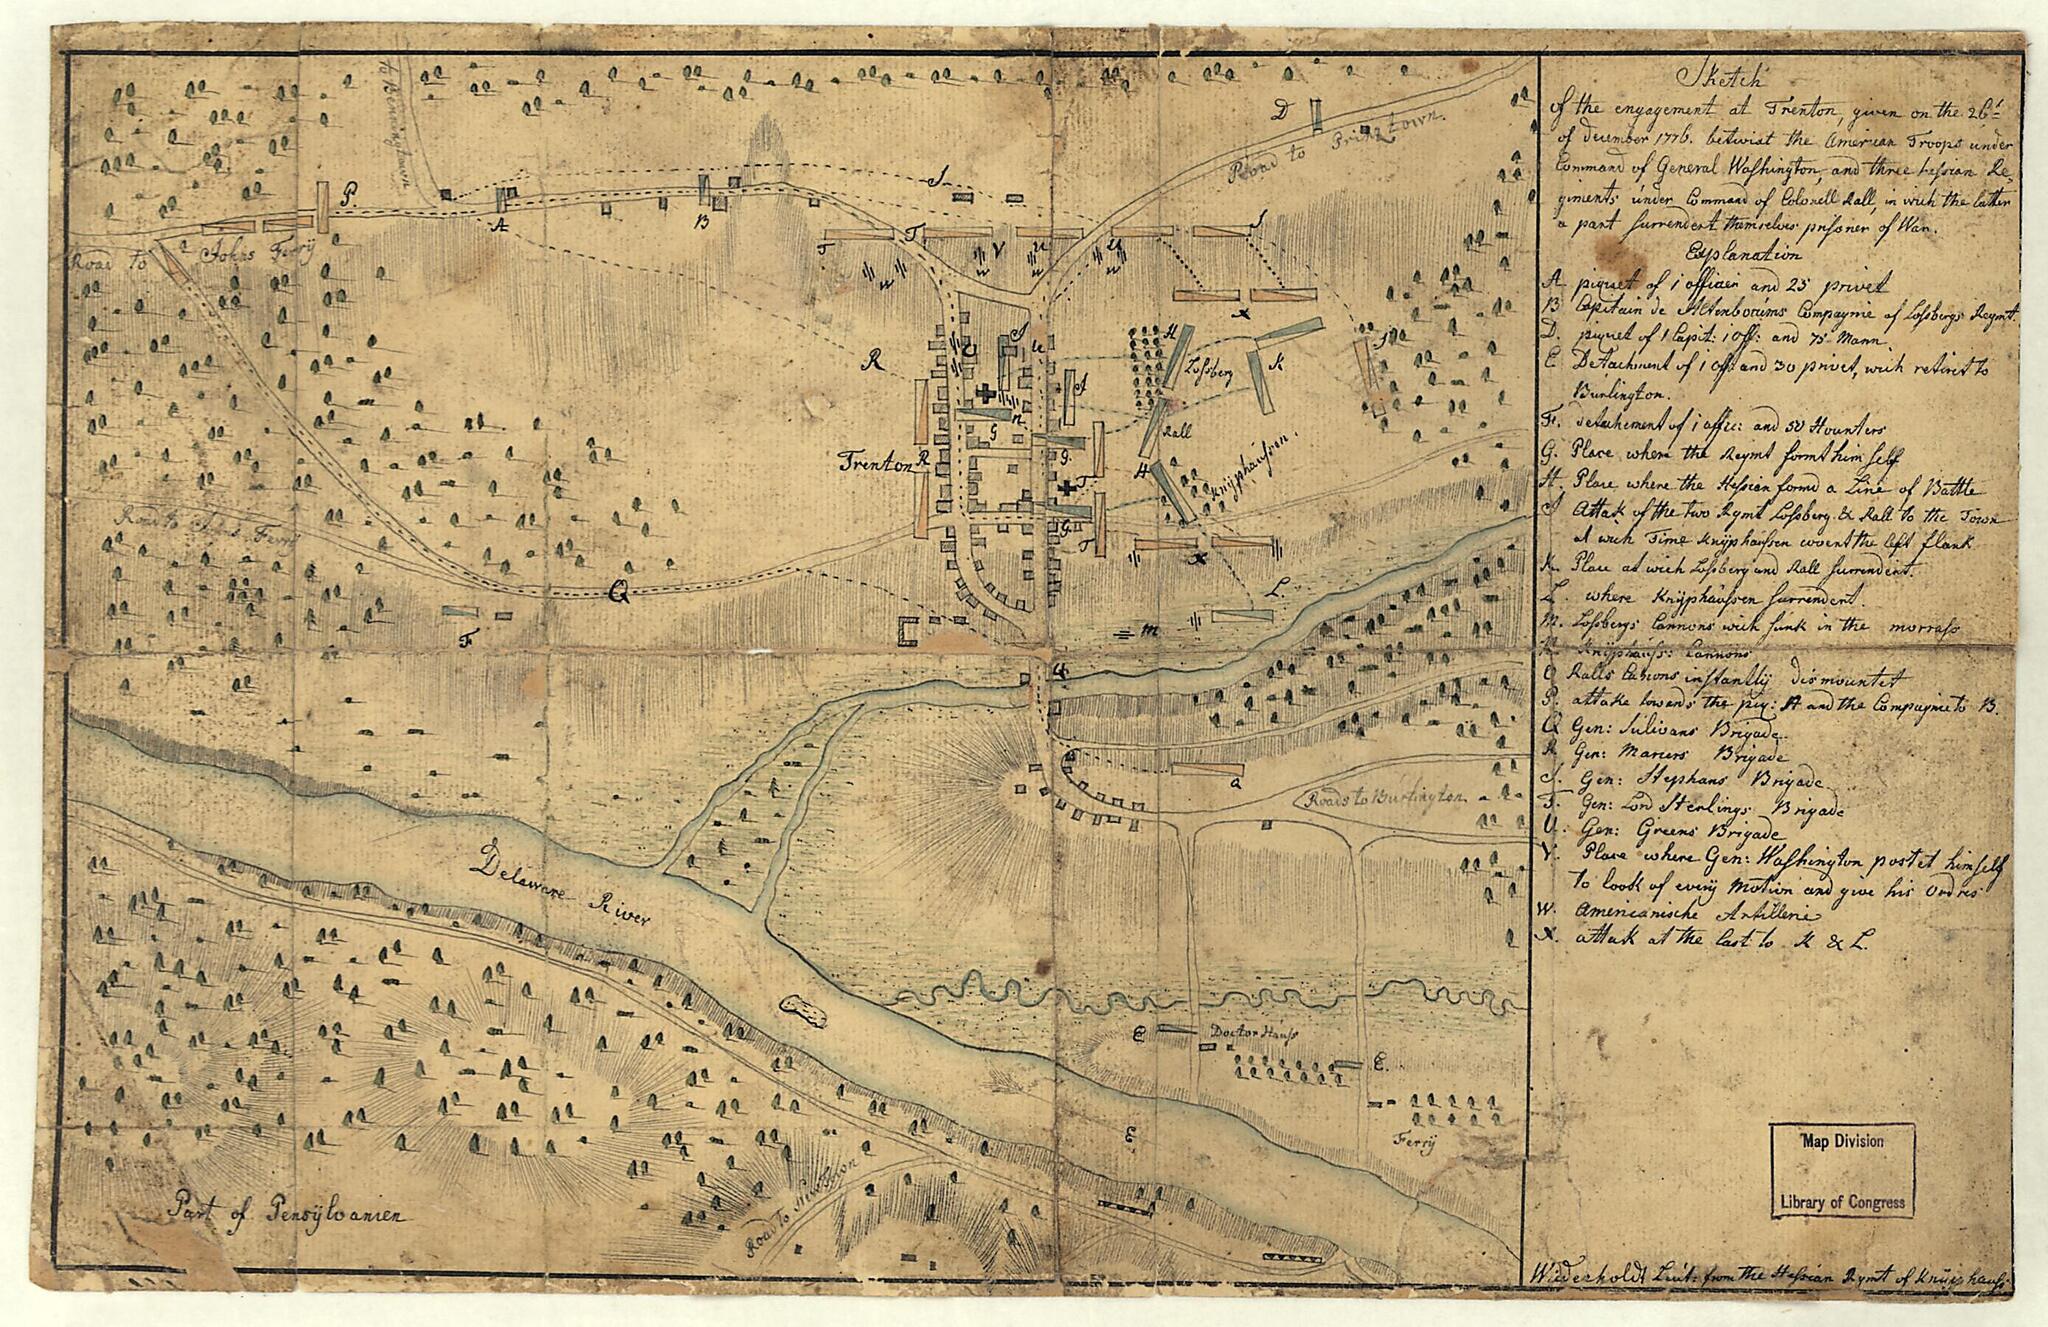 Sketch
of the engagement at Trenton, given on the 26t
of december 1776. betwixt the American Troops under
Command of General Washington, and three hessian Re-
giments under Command of Colonell Rall, in wich the latter
a part surrendert themselves prisoner of War.
Explanation
A piquet of 1 officier and 25 privet
B Capitain de Altenbocums Compagnie of Lossbergs Reymt.
D. piquet of 1 Capit: 1 off: and 75 Mann
E Detachment of 1 off: and 30 privet, wich retirit to
Burlington.
F. detachement of 1 affic: and 50 Hounters
G. Place where the Reymt formt him self
H. Place where the Hessian formd a Line of Battle
J Attak of the two Rymt Lossberg & Rall to the Town
at wich Time Knÿphaussen covert the left flank
K. Place at wich Lossberg and Rall surrendert.
L. where Knÿphaussen surrendert.
m. Lossbergs Cannons wich sunk in the morrass
N. Knÿphauss: Cannons
O Ralls Canons instantlÿ dismountet
P. attake towards the piq: A and the Compagnie to B.
Q Gen: Sulivans Brigade
R. Gen: Marcers Brigade
S. Gen: Stephans Brigade
T. Gen: Lord Sterlings Brigade
U. Gen: Greens Brigade
V. Place where Gen: Washington postet himself
to look of everÿ Motion and give his Ordres
W. Americanische Artillerie
X. attak at the last to K & L.
Map Division
Library of Congress
Wiederholdt Lieut: from the Hessian Rymt of Knÿphauss:
to Penningtown
Road to Prinztown.
D
P.
A
B
S.
Road to Johns Ferrÿ
T
T
V
U
U
S
W
W
W
X
R
O
J
U
H
Lossberg
K
S
J
n
G
g.
Rall
Trenton
R
H
Knÿphaussen.
T
G
T
X
Road to Johns Ferrÿ
Q
F
L.
m
Q
Q
Roads to Burlington
Delaware River
E
Doctor Hauss
E.
E
Ferrÿ
Part of Pensÿlvanien
Road to Newtson